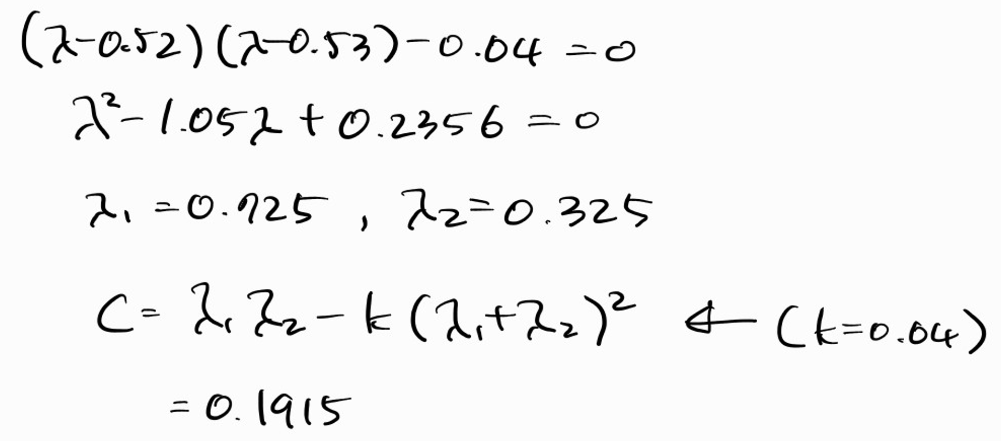 (λ-0.52)(λ-0.53)-0.04=0
λ²-1.05λ+0.2356=0
λ₁=0.725, λ₂=0.325
C=λ₁λ₂-k(λ₁+λ₂)² ← (k=0.04)
=0.1915